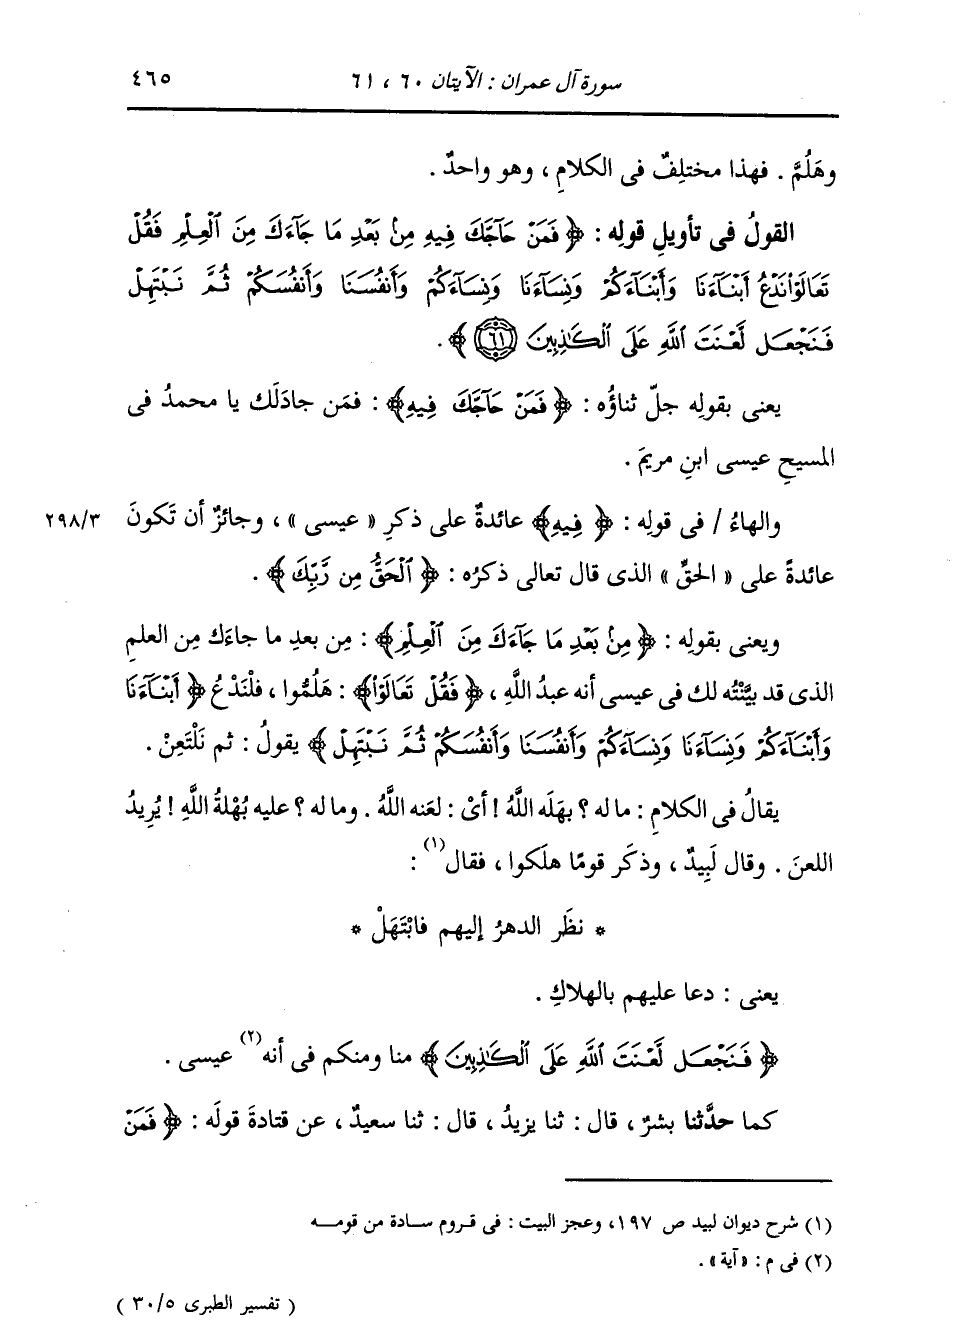 سورة آل عمران : الآيتان ٦٠ ، ٦١ ٤٦٥
وهَلُمَّ . فهذا مختلِفٌ فى الكلامِ ، وهو واحدٌ .
القولُ فى تأويلِ قولِه : ﴿ فَمَنْ حَآجَّكَ فِيهِ مِنۢ بَعْدِ مَا جَآءَكَ مِنَ ٱلْعِلْمِ فَقُلْ
تَعَالَوْا۟ نَدْعُ أَبْنَآءَنَا وَأَبْنَآءَكُمْ وَنِسَآءَنَا وَنِسَآءَكُمْ وَأَنفُسَنَا وَأَنفُسَكُمْ ثُمَّ نَبْتَهِلْ
فَنَجْعَل لَّعْنَتَ ٱللَّهِ عَلَى ٱلْكَٰذِبِينَ ﴿٦١﴾ ﴾ .
يعنى بقولِه جلّ ثناؤُه : ﴿ فَمَنْ حَآجَّكَ فِيهِ ﴾ : فمَن جادَلَك يا محمدُ فى
المسيحِ عيسى ابنِ مريمَ .
والهاءُ / فى قولِه : ﴿ فِيهِ ﴾ عائدةٌ على ذكرِ « عيسى » ، وجائزٌ أن تَكونَ ٢٩٨/٣
عائدةً على « الحقِّ » الذى قال تعالى ذكرُه : ﴿ ٱلْحَقُّ مِن رَّبِّكَ ﴾ .
ويعنى بقولِه : ﴿ مِنۢ بَعْدِ مَا جَآءَكَ مِنَ ٱلْعِلْمِ ﴾ : مِن بعدِ ما جاءَك مِن العلمِ
الذى قد بيَّنْتُه لك فى عيسى أنه عبدُ اللَّهِ ، ﴿ فَقُلْ تَعَالَوْا۟ ﴾ : هَلُمُّوا ، فلْنَدْعُ ﴿ أَبْنَآءَنَا
وَأَبْنَآءَكُمْ وَنِسَآءَنَا وَنِسَآءَكُمْ وَأَنفُسَنَا وَأَنفُسَكُمْ ثُمَّ نَبْتَهِلْ ﴾ يقولُ : ثم نَلْتَعِنْ .
يقالُ فى الكلامِ : ما له ؟ بهَلَه اللَّهُ ! أىْ : لعَنه اللَّهُ . وما له ؟ عليه بُهْلةُ اللَّهِ ! يُرِيدُ
اللعنَ . وقال لَبِيدٌ ، وذكَر قومًا هلَكوا ، فقال (١) :
* نظَر الدهرُ إليهم فابْتَهَلْ *
يعنى : دعا عليهم بالهلاكِ .
﴿ فَنَجْعَل لَّعْنَتَ ٱللَّهِ عَلَى ٱلْكَٰذِبِينَ ﴾ منا ومنكم فى أنه (٢) عيسى .
كما حدَّثنا بشرٌ ، قال : ثنا يزيدُ ، قال : ثنا سعيدٌ ، عن قتادةَ قولَه : ﴿ فَمَنْ
(١) شرح ديوان لبيد ص ١٩٧، وعجز البيت : فى قروم سادة من قومه
(٢) فى م : « آية » .
( تفسير الطبرى ٣٠/٥ )